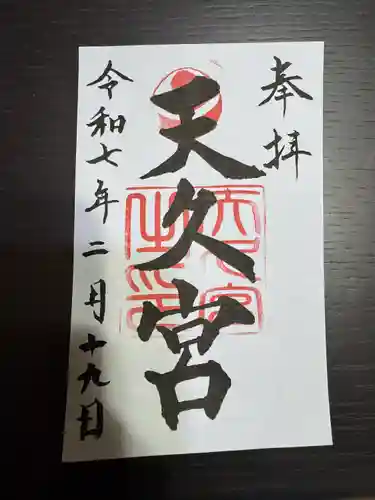 奉拝
天久宮
令和七年二月十九日
天久宮之印